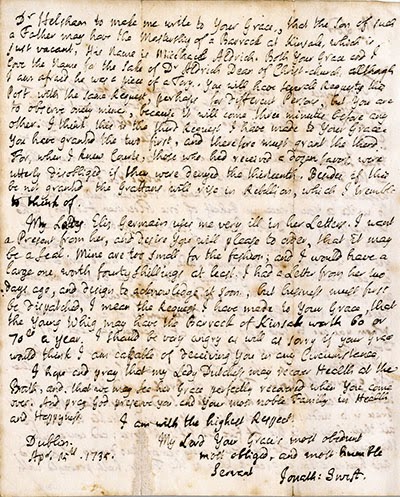 Dr Helsham to make me write to Your Grace, that the Son of such
a Father may have the Mastership of a Barrack at Kinsale, which is
just vacant, His Name is Michael Aldrich. Both Your Grace and I
love the Name for the Sake of Dr Aldrich Dean of Christ-church, although
I am afraid he was a piece of a Tory. You will have several requests this
Post with the same Request, perhaps for different Persons, but You are
to observe only mine, because it will come three minutes before any
other. I think this is the third Request I have made to Your Grace.
You have granted the two first, and therefore must grant the third.
For, when I knew Courts, those who had received a dozen favors, were
utterly disobliged if they were denyed the thirteenth. Besides, if this
be not granted the Grattans will rise in Rebellion, which I tremble
to think of.
My Lady Eliz. Germain uses me very ill in her Letters. I want
a Present from her, and desire you will please to order, that it may
be a Seal. Mine are too small for the fashion, and I would have a
large one, worth fourty shillings at least. I had a Letter from her two
days ago, and design to acknowledge it soon, but business must first
be dispatched, I mean the Request I have made to Your Grace, that
the Young Whig may have the Barrack of Kinsale worth 60 or
70ll a year. I should be very angry as well as sorry if Your Grace
would think I am capable of deceiving You in any Circumstance.
I hope and pray that my Lady Dutchess may recover Health at the
Bath, and that we may see her Grace perfectly recovered when You come
over. And pray God preserve you and Your most noble Family in Health
and Happyness.
I am with the highest Respect
Dublin. My Lord Your Grace's most obedient
Apr. 15th. 1735. most obliged, and most humble
Servant
Jonath: Swift.